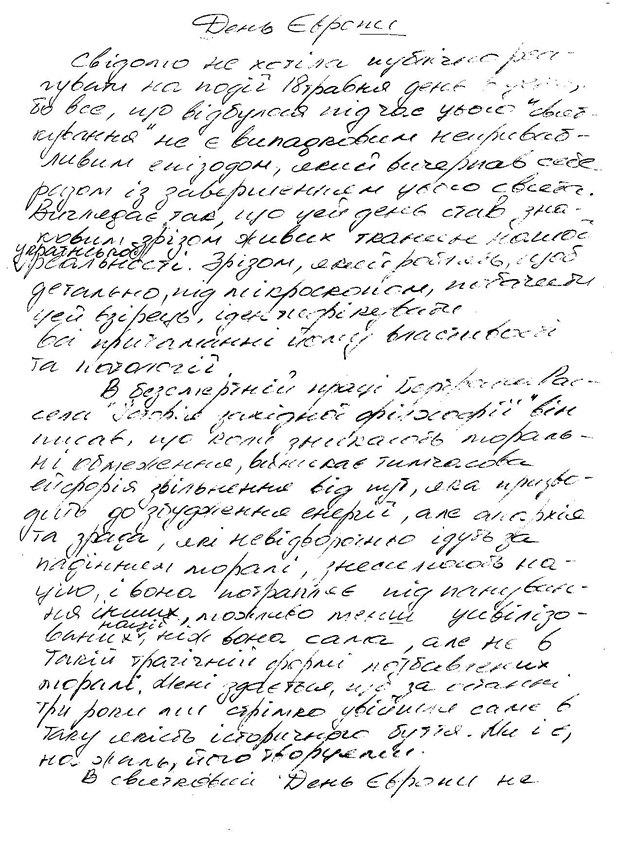 День Європи
Свідомо не хотіла публічно реа-
гувати на події 18 травня день
бо все, що відбулося під час цього "свят-
кування" не є випадковим неприваб-
ливим епізодом, який вичерпав себе
разом із завершенням цього свята.
Виглядає так, що цей день став зна-
ковим зрізом живих тканин нашої
української
реальності. Зрізом, який робл��ть, щоб
детально, під мікроскопом, побачити
цей взірець, ідентифікувати
всі притаманні йому властивості
та патології.
В безсмертній праці Бертрана Рас-
села "Історія західної філософії" він
писав, що коли зникають мораль-
ні обмеження, виникає тимчасова
ейфорія звільнення від пут, яка призво-
дить до збудження енергії, але анархія
та зрада, які невідворотньо ідуть за
падінням моралі, знесилюють на-
цію, і вона потрапляє під пануван-
ня інших, можливо менш цивілізо-
націй
ваних, ніж вона сама, але не в
такій трагічній формі позбавлених
моралі. Мені здається, що за останні
три роки ми стрімко увійшли саме в
таку якість історичного буття. Ми і є,
на жаль, його творцями.
В святковий День Європи не